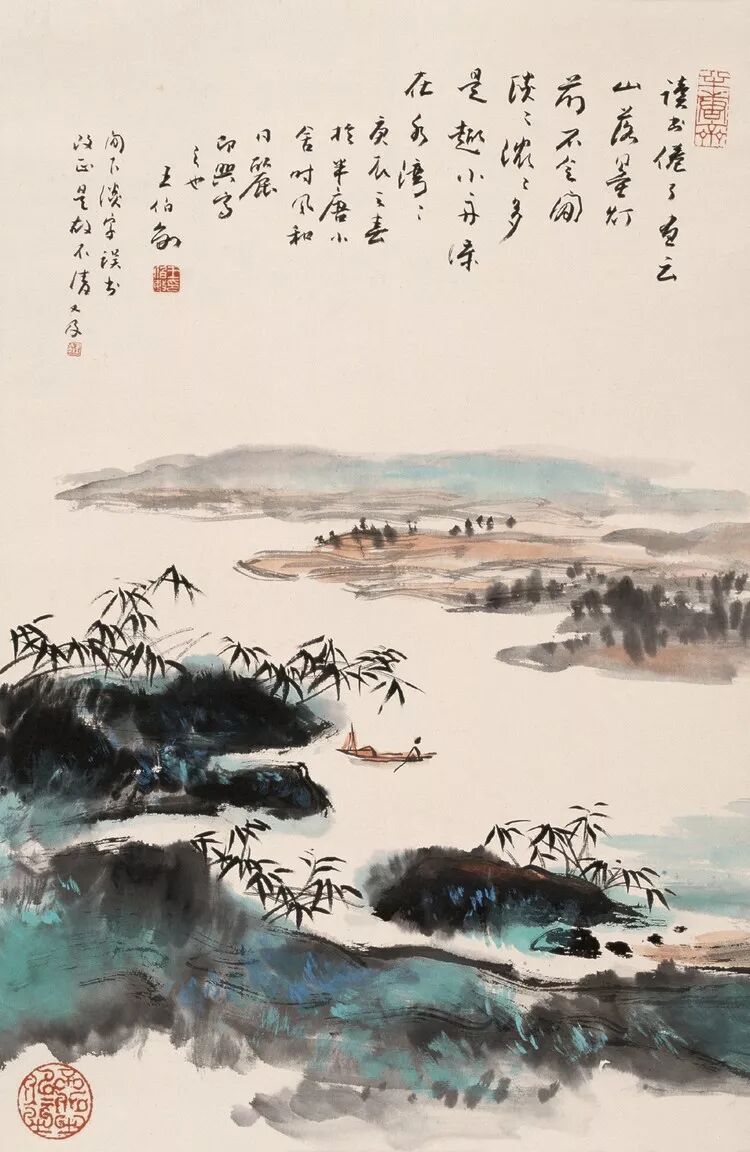 半唐齋
讀书倦了画云
山落墨灯
前不会闲
淡淡浓浓多
是趣小舟深
在水湾湾
庚辰之春
於半唐小
舍时风和
日麗
即興写
之也
王伯敏
闲下淡字误书
改正是故不清又及